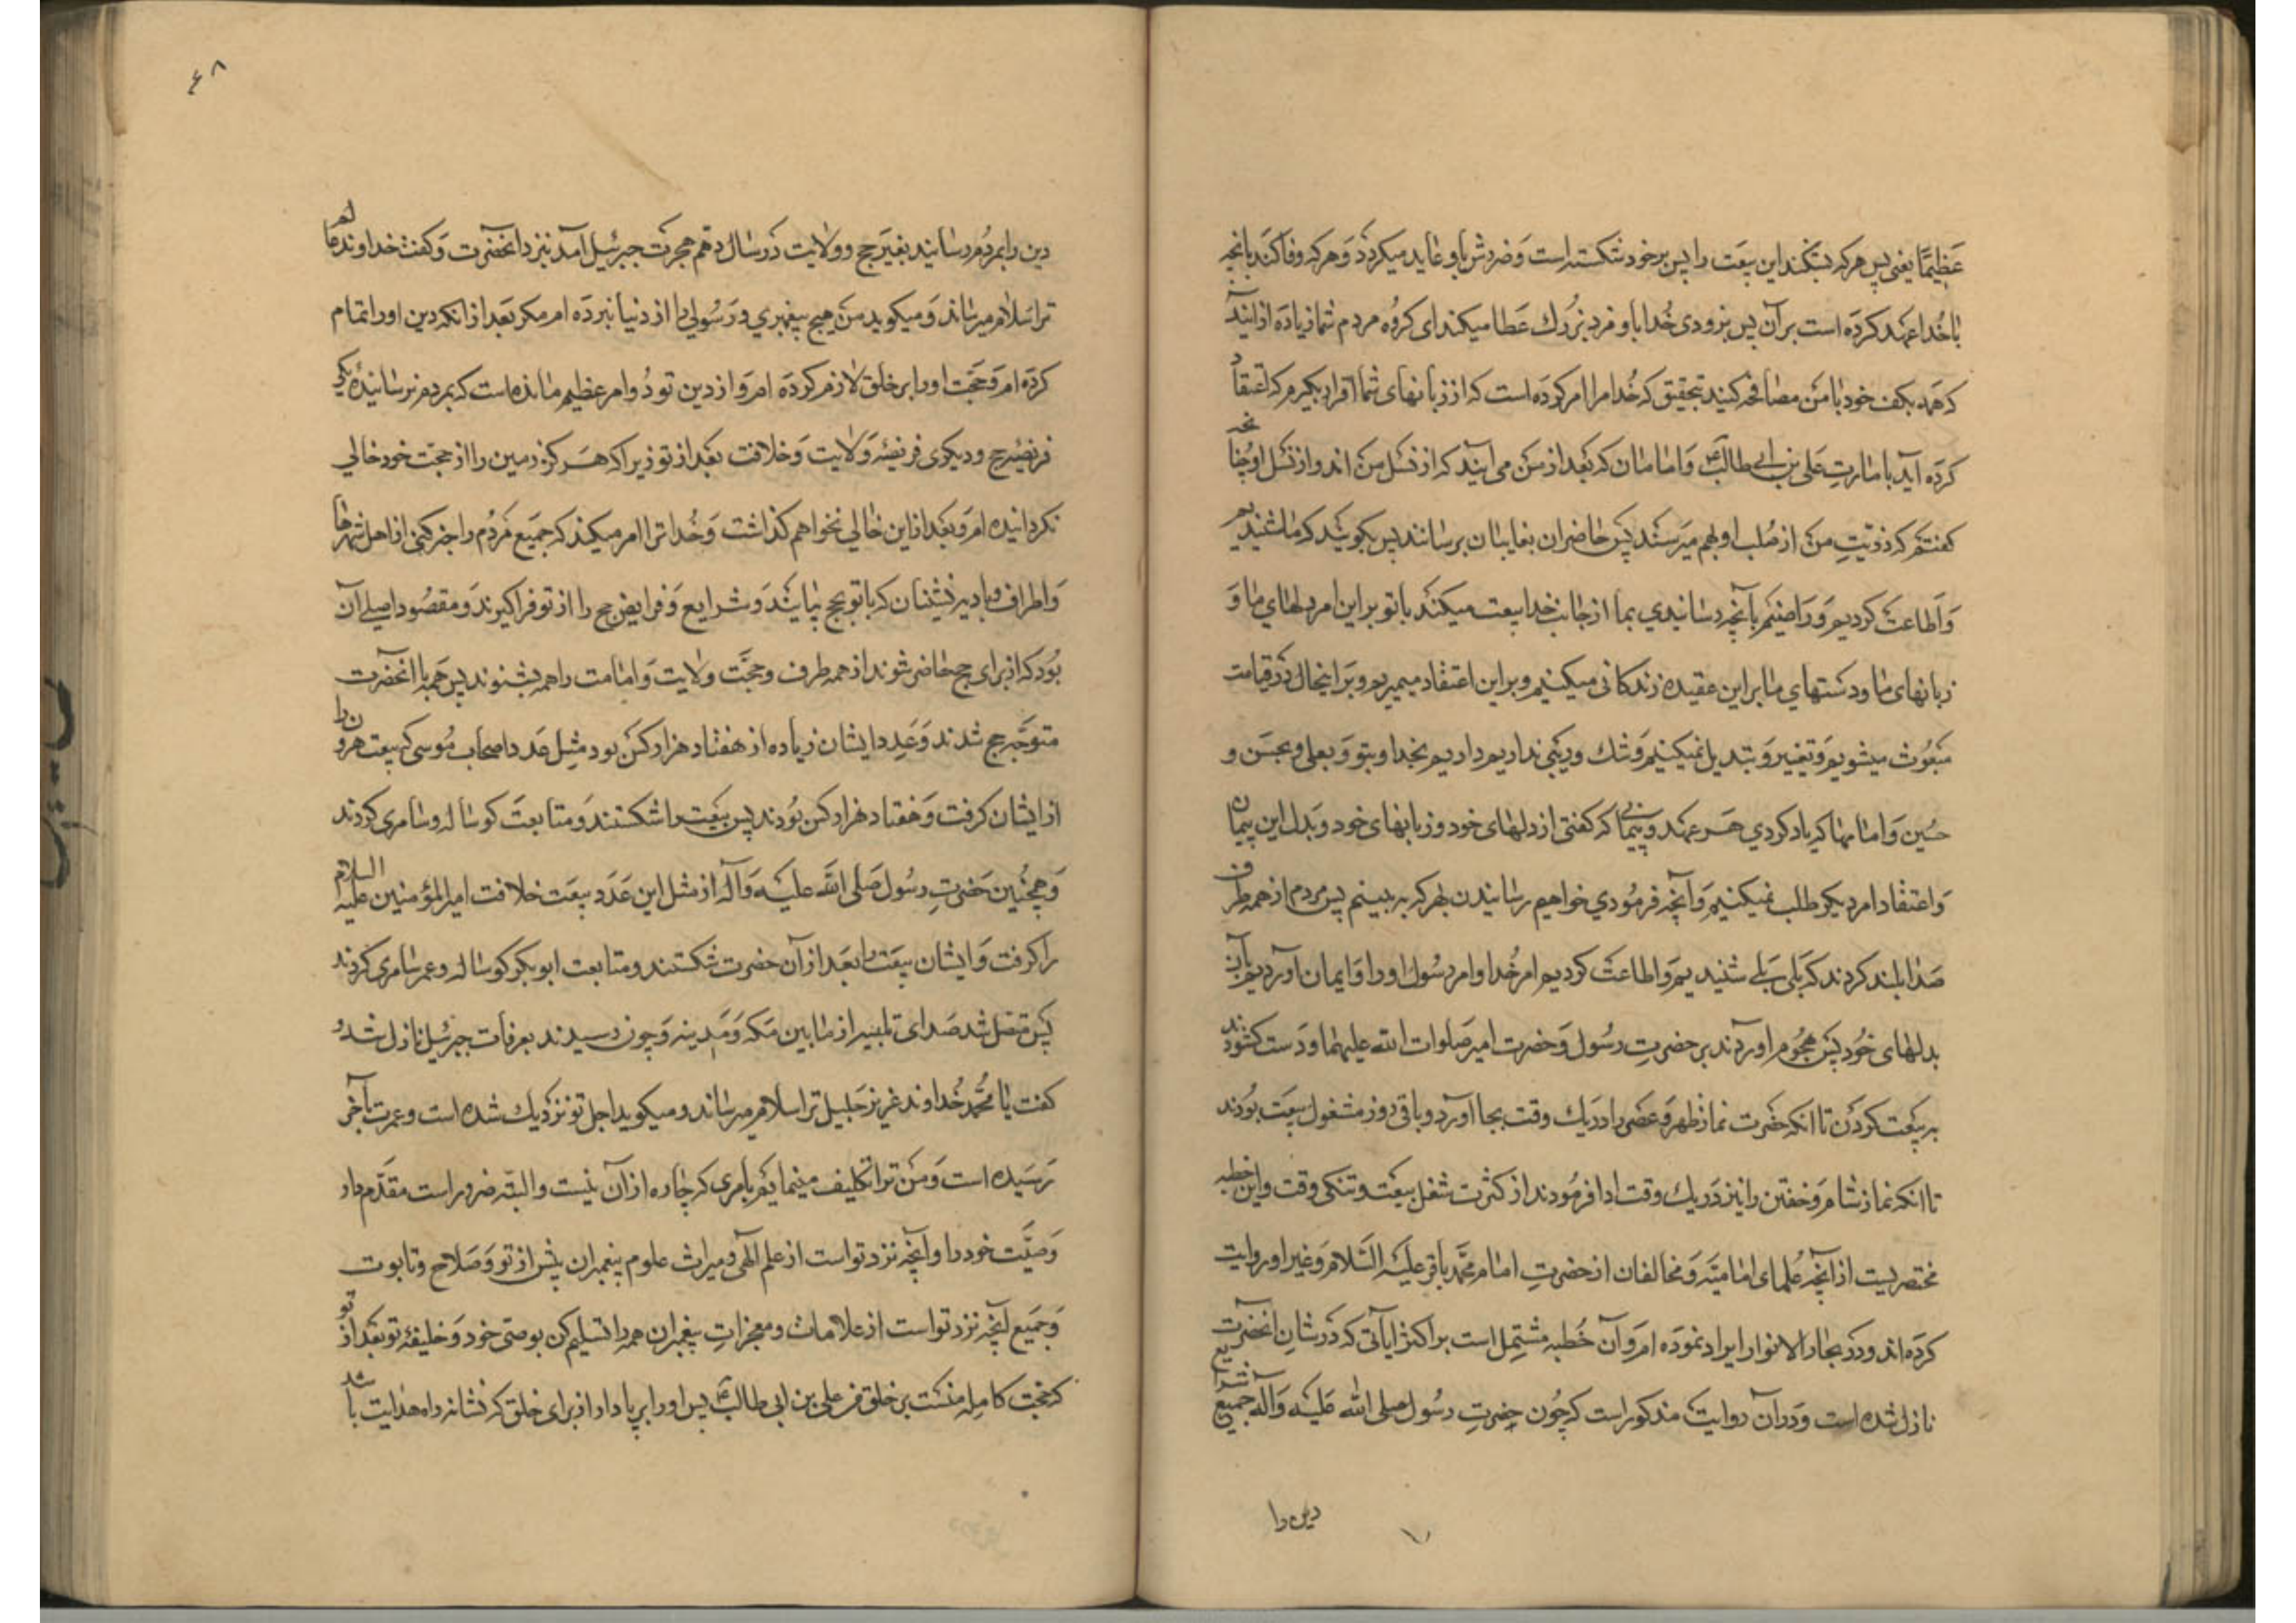 عَظِیمًا یعنی پس هرکه بشکند این بیعَت را پس بر خود شکسته است وَ ضررش باو عاید میکردَد وَ هرکه وفا کنَد بانچه
با خُدا عَهد کردَه است بر آن پس بزودی خُدا باو مزد بزرك عَطا میکند ای کرُوه مردم شما زیادَه از انید
که همه بکف خود با مَن مصافحه کنید بتحقیق که خُدا مرا امر کردَه است که از زبانهای شما اقرار بکیرم که اعتقاد
کردَه اید بامارتِ عَلی بن ابی طالبؑ وَ امامان که بَعد از مَن می ایند که از نسل مَن اند و از نسل او چنانچه
کفتم که ذریّتِ من از صُلب او بهم میرَسند پَس حاضران بغایبان برسانند پس بکوییَد که ما شنیدیم
وَ اَطاعت کردیم وَ راضییم بآنچه رسانیدی بما از جانب خدا بیعت میکنَیم با تو بر این امر دلهای ما وَ
زبانهای ما و دستهای ما بر این عقیده زندکانی میکنیم و بر این اعتقاد میمیریم و بَر اینحال دَر قیامت
مَبعُوث میشویم وَ تغییر وَ تبدیل نمیکنیم وَ شك و ریَبی نداریم دادیم بخدا و بتو وَ بعلی و بحسَن و
حسُین وَ امامها که یاد کردی هَر عهَد و پیمانی که کفتی از دلهای خود و زبانهای خود و بَدل این پیمان
وَ اعتقاد امر دیکر طلب نمیکنیم وَ آنچه فرمُودی خواهیم رسانیدن بهر که به بینیم پس مردم از همه طرف
صَدا بلند کردند که بَلی بَلی شنیدیم وَ اطاعت کردیم امر خُدا و امر رسُول او را وَ ایمان آوردیم بآن
بدلهای خُود پَس هجُوم اوردند بر حضرتِ رسُول وَ حضرت امیر صَلوات الله علیهما و دَست کشودند
به بیَعت کردَن تا انکه حضَرت نماز ظهر وَ عَصر را در یك وقت بجا اورد و باقی روز مشغول بیعَت بوُدند
تا انکه نماز شام وَ خفتن را نیز دَر یك وقت ادا فرمُودند از کثرت شغل بیعَت و تنکی وقت و این خطبه
مختصریست از انچه عُلمای امامیّه وَ مخالفان از حضرتِ امام محمَّد باقر علَیه السّلام وَ غیر او روایت
کردَه اند و دَر بحار الانوار ایراد نموَده ام وَ آن خُطبه مشتمِل است بر اکثر ایاتی که دَر شان آنحضرت
نازل شده است و دَر آن روایتَ مذکور است که چُون حضرتِ رسُول صلی الله علَیه وَ آله جمیع شرایع
دین را
٤٨
دین را بمردُم رسانید بغیر حج و ولایت دَر سال دهم هجرَت جبرئیل آمد بنزد انحضرت وَ کفت خداوند ما
ترا سَلام میرساند وَ میکوید من هیچ پیغمبری وَ رسُولی را از دنیا نبردَه ام مکر بَعد از انکه دین او را تمام
کردَه ام وَ حجّت او را بر خلق لازم کردَه ام وَ از دین تو دُو امر عظیم مانده است که بمردم نرسانیدهٔ یکی
فریضهٔ حج و دیکری فریضهٔ وَلایت وَ خلافت بعَد از تو زیرا که هَرکز زمین را از حجّت خود خالی
نکردانیده ام وَ بعَد از این خالی نخواهم کذاشت وَ خُدا ترا امر میکند که جمَیع مَردُم را خبر کنی از اهل شهرها
وَ اطراف و بادیه نشینان که با تو بحج بیایند وَ شرایع وَ فرایض حج را از تو فراکیرند و مقصُود اصلی آن
بُود که از برای حج حاضر شوند از همه طرف و حجّت ولایت وَ امامت را همه بشنوند پس همه با آنحضرت
متوجّه حج شدند وَ عَدد ایشان زیاده از هفتاد هزار کَس بود مثِل عَدد اصحاب مُوسی که بیعت هرون را
از ایشان کرفت وَ هفتاد هزار کَس بُودند پس بیَعت را شکستند وَ متابعتَ کوساله و سامری کردند
وَ همچنین حَضرتِ رسُول صَلی الله علیَه وَ آله از مثل این عَدَد بیعَت خلافت امیر المؤمنین علیه السلام
را کرفت وَ ایشان بیعَت را بعَد از آن حضرت شکستند و متابعت ابوبکر کوساله و عمر سامری کردند
پَس متصل شد صَدای تلبیه از مابین مَکه وَ مَدینه وَ چون رسیدند بعرفات جبرئیل نازل شد وُ
کفت یا محُمّد خُداوند عزیز جَلیل ترا سَلام میرساند و میکوید اجل تو نزدیك شده است و عمرت بآخر
رسَیده است وَ من ترا تکلیف مینمایم بامری که چاره از آن نیست و البتّه ضرور است مقَدّم دار
وَصیّت خود را و آنچه نزد تو است از علم الهی و میراث علوم پیغمبران پیش از تو وَ سَلاح و تابوت
وَ جَمیع آنچه نزد تو است از علامات و معجزاتِ پیغمبران همه را تسلیم کن بوصّی خود وَ خلیفهٔ تو بعَد از تو
که حجّت کامِله منسَت بر خلق من علی بن ابی طالبؑ پس او را بر پا دار از برای خلق که نشانهٔ راه هدایت باشد